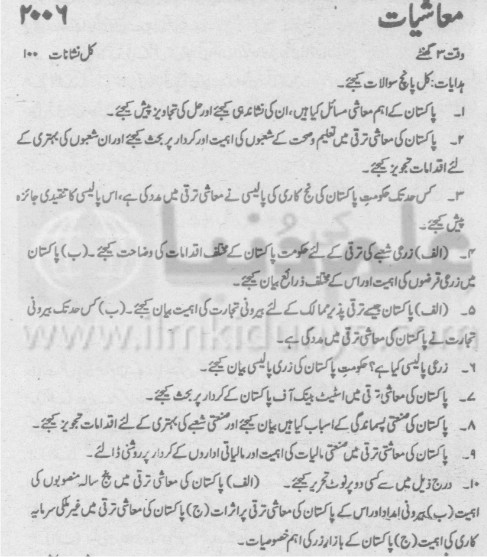 معاشیات ۲۰۰۶
وقت ۳ گھنٹے کل نشانات ۱۰۰
ہدایات: کل پانچ سوالات کیجئے۔
۱۔ پاکستان کے اہم معاشی مسائل کیا ہیں، ان کی نشاندہی کیجئے اور حل کی تجاویز پیش کیجئے۔
۲۔ پاکستان کی معاشی ترقی میں تعلیم و صحت کے شعبوں کی اہمیت اور کردار پر بحث کیجئے اور ان شعبوں کی بہتری کے
لئے اقدامات تجویز کیجئے۔
۳۔ کس حد تک حکومت پاکستان کی نج کاری کی پالیسی نے معاشی ترقی میں مدد کی ہے، اس پالیسی کا تنقیدی جائزہ
پیش کیجئے۔
۴۔ (الف) زرعی شعبے کی ترقی کے لئے حکومت پاکستان کے مختلف اقدامات کی وضاحت کیجئے۔ (ب) پاکستان
میں زرعی قرضوں کی اہمیت اور اس کے مختلف ذرائع بیان کیجئے۔
۵۔ (الف) پاکستان جیسے ترقی پذیر ممالک کے لئے بیرونی تجارت کی اہمیت بیان کیجئے۔ (ب) کس حد تک بیرونی
تجارت نے پاکستان کی معاشی ترقی میں مدد کی ہے۔
۶۔ زری پالیسی کیا ہے؟ حکومت پاکستان کی زری پالیسی بیان کیجئے۔
۷۔ پاکستان کی معاشی ترقی میں اسٹیٹ بینک آف پاکستان کے کردار پر بحث کیجئے۔
۸۔ پاکستان کی صنعتی پسماندگی کے اسباب کیا ہیں بیان کیجئے اور صنعتی شعبے کی بہتری کے لئے اقدامات تجویز کیجئے۔
۹۔ پاکستان کی معاشی ترقی میں صنعتی مالیات کی اہمیت اور مالیاتی اداروں کے کردار پر روشنی ڈالئے۔
۱۰۔ درج ذیل میں سے کسی دو پر نوٹ تحریر کیجئے۔ (الف) پاکستان کی معاشی ترقی میں پنج سالہ منصوبوں کی
اہمیت (ب) بیرونی امداد اور اس کے پاکستان کی معاشی ترقی پر اثرات (ج) پاکستان کی معاشی ترقی میں غیر ملکی سرمایہ
کاری کی اہمیت (ج) پاکستان کے بازار زر کی اہم خصوصیات۔
علم کی دنیا
www.ilmkidunya.com